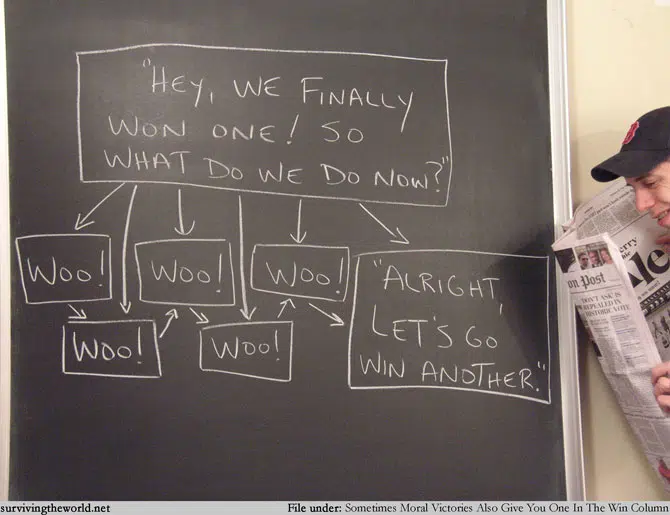 "HEY, WE FINALLY
WON ONE! SO
WHAT DO WE DO NOW?"
WOO!
WOO!
WOO!
WOO!
WOO!
"ALRIGHT,
LET'S GO
WIN ANOTHER."
on Post
'DON'T ASK' IS
REPEALED IN
HISTORIC VOTE
survivingtheworld.net
File under: Sometimes Moral Victories Also Give You One In The Win Column